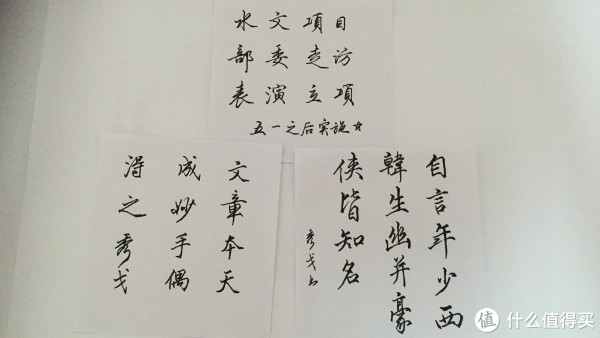 水文項目
部委走访
表演立項
五一之后实施☆
文章本天
成妙手偶
得之秀戈
自言年少西
韓生幽并豪
侠皆知名
秀戈书
值 什么值得买